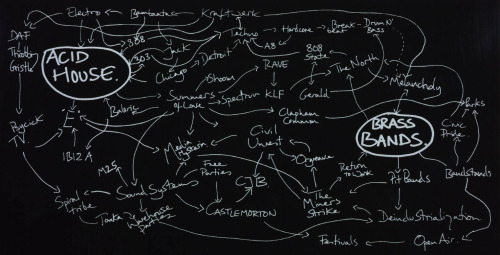 Electro
Bambaataa
Kraftwerk
DAF
Throbbing
Gristle
808
303
Jack
Techno
Hardcore
Break-
beat
Drum N
Bass
ACID
HOUSE.
Chicago
Detroit
A8
808
State
The North
RAVE
Shoom
Melancholy
Balearic
Summers
of Love
Spectrum
KLF
Gerald
Parks
"E"
Psychick
TV.
Clapham
Common
BRASS
BANDS.
Civic
Pride.
IBIZA
Media
Hysteria
Civil
Unrest
Orgreave
M25
Free
Parties
Return
to Work
Pit Bands
Bandstands
Spiral
Tribe
Sound Systems
CJB.
The
Miners
Strike
Tonka
Warehouse
parties
CASTLEMORTON
Deindustrialization
Festivals
Open Air.